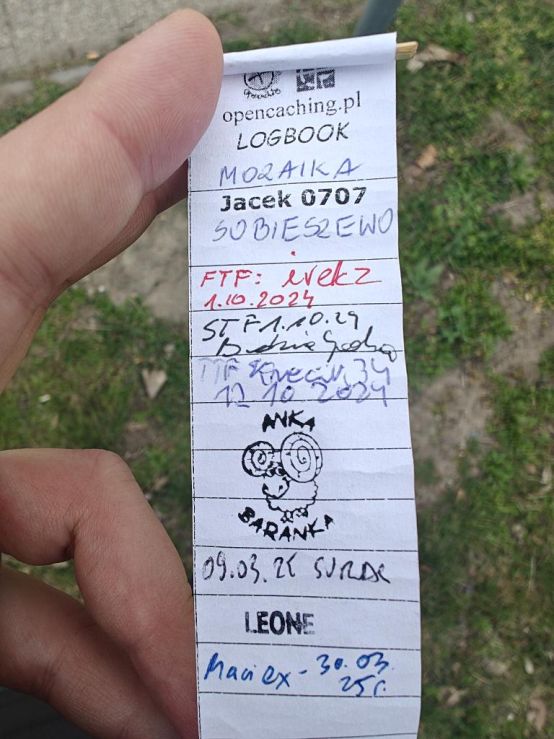 opencaching.pl
LOGBOOK
MOZAIKA
Jacek 0707
SOBIESZEWO
FTF: irekz
1.10.2024
STF 1.10.24
TTF
12 10 2024
ANKA
BARANKA
09.03.25
LEONE
Maciex - 30.03.
25r.